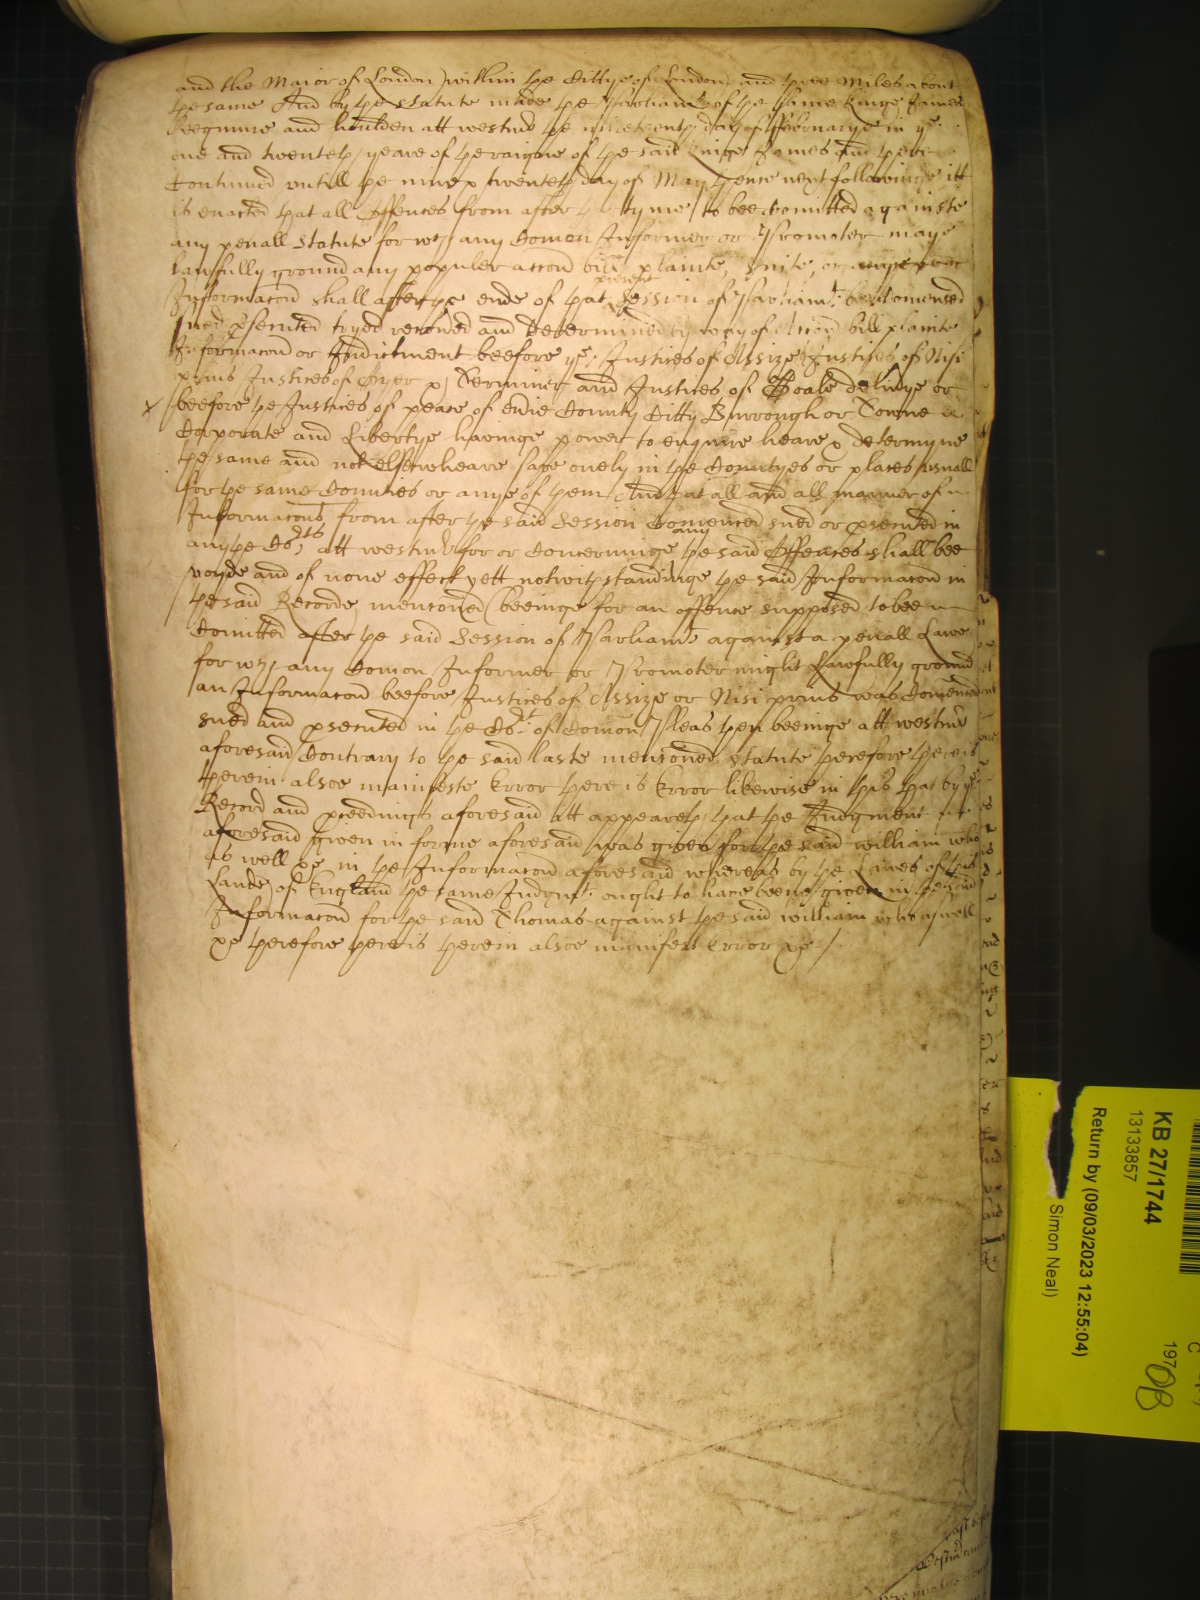 and the Maior of London) within þe Cittye of London and þree Miles about
þe same And by þe Statute made þe Parliamt of þe same Kinge James
beegunne and houlden att westmr þe nineteenþ day of ffebruarye in ye
one and twenteþ yeare of þe raigne of þe said Kinge James and þere
Continued untill þe nine & twenteþ day of May þence next followinge itt
is enacted þat all Offences from after þt tyme to bee Comitted againste
any penall Statute for wch any Comon Informer or Promoter maye
lawfully ground any populer accon bill plainte, suite, or
Informacon shall after þe ende of þat present Session of Parliamt bee Comenced
sued psecuted tryed recoured and determined by way of Accon bill plainte
Informacon or Indictment beefore ye Justices of Assize Justices of Nisi
prius Justices of Oyer & Terminer and Justices of Goale deliuye or
x beefore þe Justices of peace of eu'ie County Citty Burrough or Towne
Corporate and Libertye hauinge power to enquire heare & determyne
þe same and not elsewheare save onely in þe Countyes or places usuall
for þe same Counties or anye of þem And þat all and all manner of
Informacons from after þe said Session Comenced sued or psecuted in
any þe Cots att westmr for or Concerninge any þe said Offences shall bee
voyde and of none effect yett notwiþstandinge þe said Informacon in
þe said Recorde mencioned (beeinge for an offence supposed to bee
Comitted after þe said Session of Parliamt against a penall Lawe
for wch any Comon Informer or Promoter might Lawfully ground
an Informacon beefore Justices of Assize or Nisi prius was Comenced
sued and psecuted in þe Cot of Comon Pleas þen beeinge att westmr
aforesaid Contrary to þe said laste mencioned Statute þerefore þere is
þerein alsoe manifeste Error þere is Error likewise in þis þat by ye
Record and pceedings aforesaid itt appeareþ þat þe Judgment
aforesaid given in forme aforesaid was given for þe said William who
as well &c in þe Informacon aforesaid whereas by þe Lawes of this
Lande of England þe same Judgmt ought to have beene given in þe said
Informacon for þe said Thomas against þe said William who aswell
&c þerefore þere is þerein alsoe manifest Error &c /
KB 27/1744
13133857
Return by (09/03/2023 12:55:04)
Simon Neal)